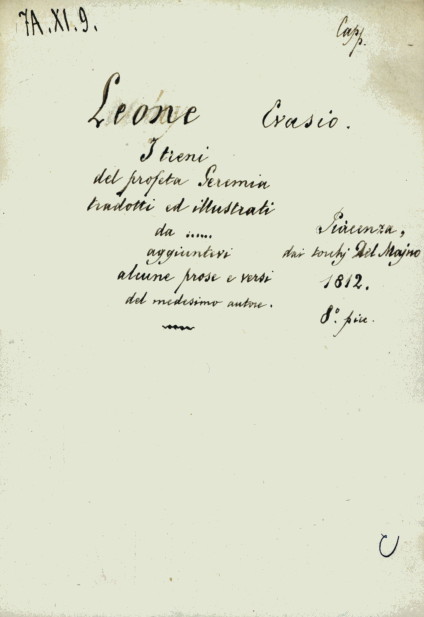 7A.XI.9.
Capp.
Leone Evasio.
I treni
del profeta Geremia
tradotti ed illustrati
da .....
aggiuntevi
alcune prose e versi
del medesimo autore.
Piacenza,
dai torchj Del Majno
1812.
8° picc.